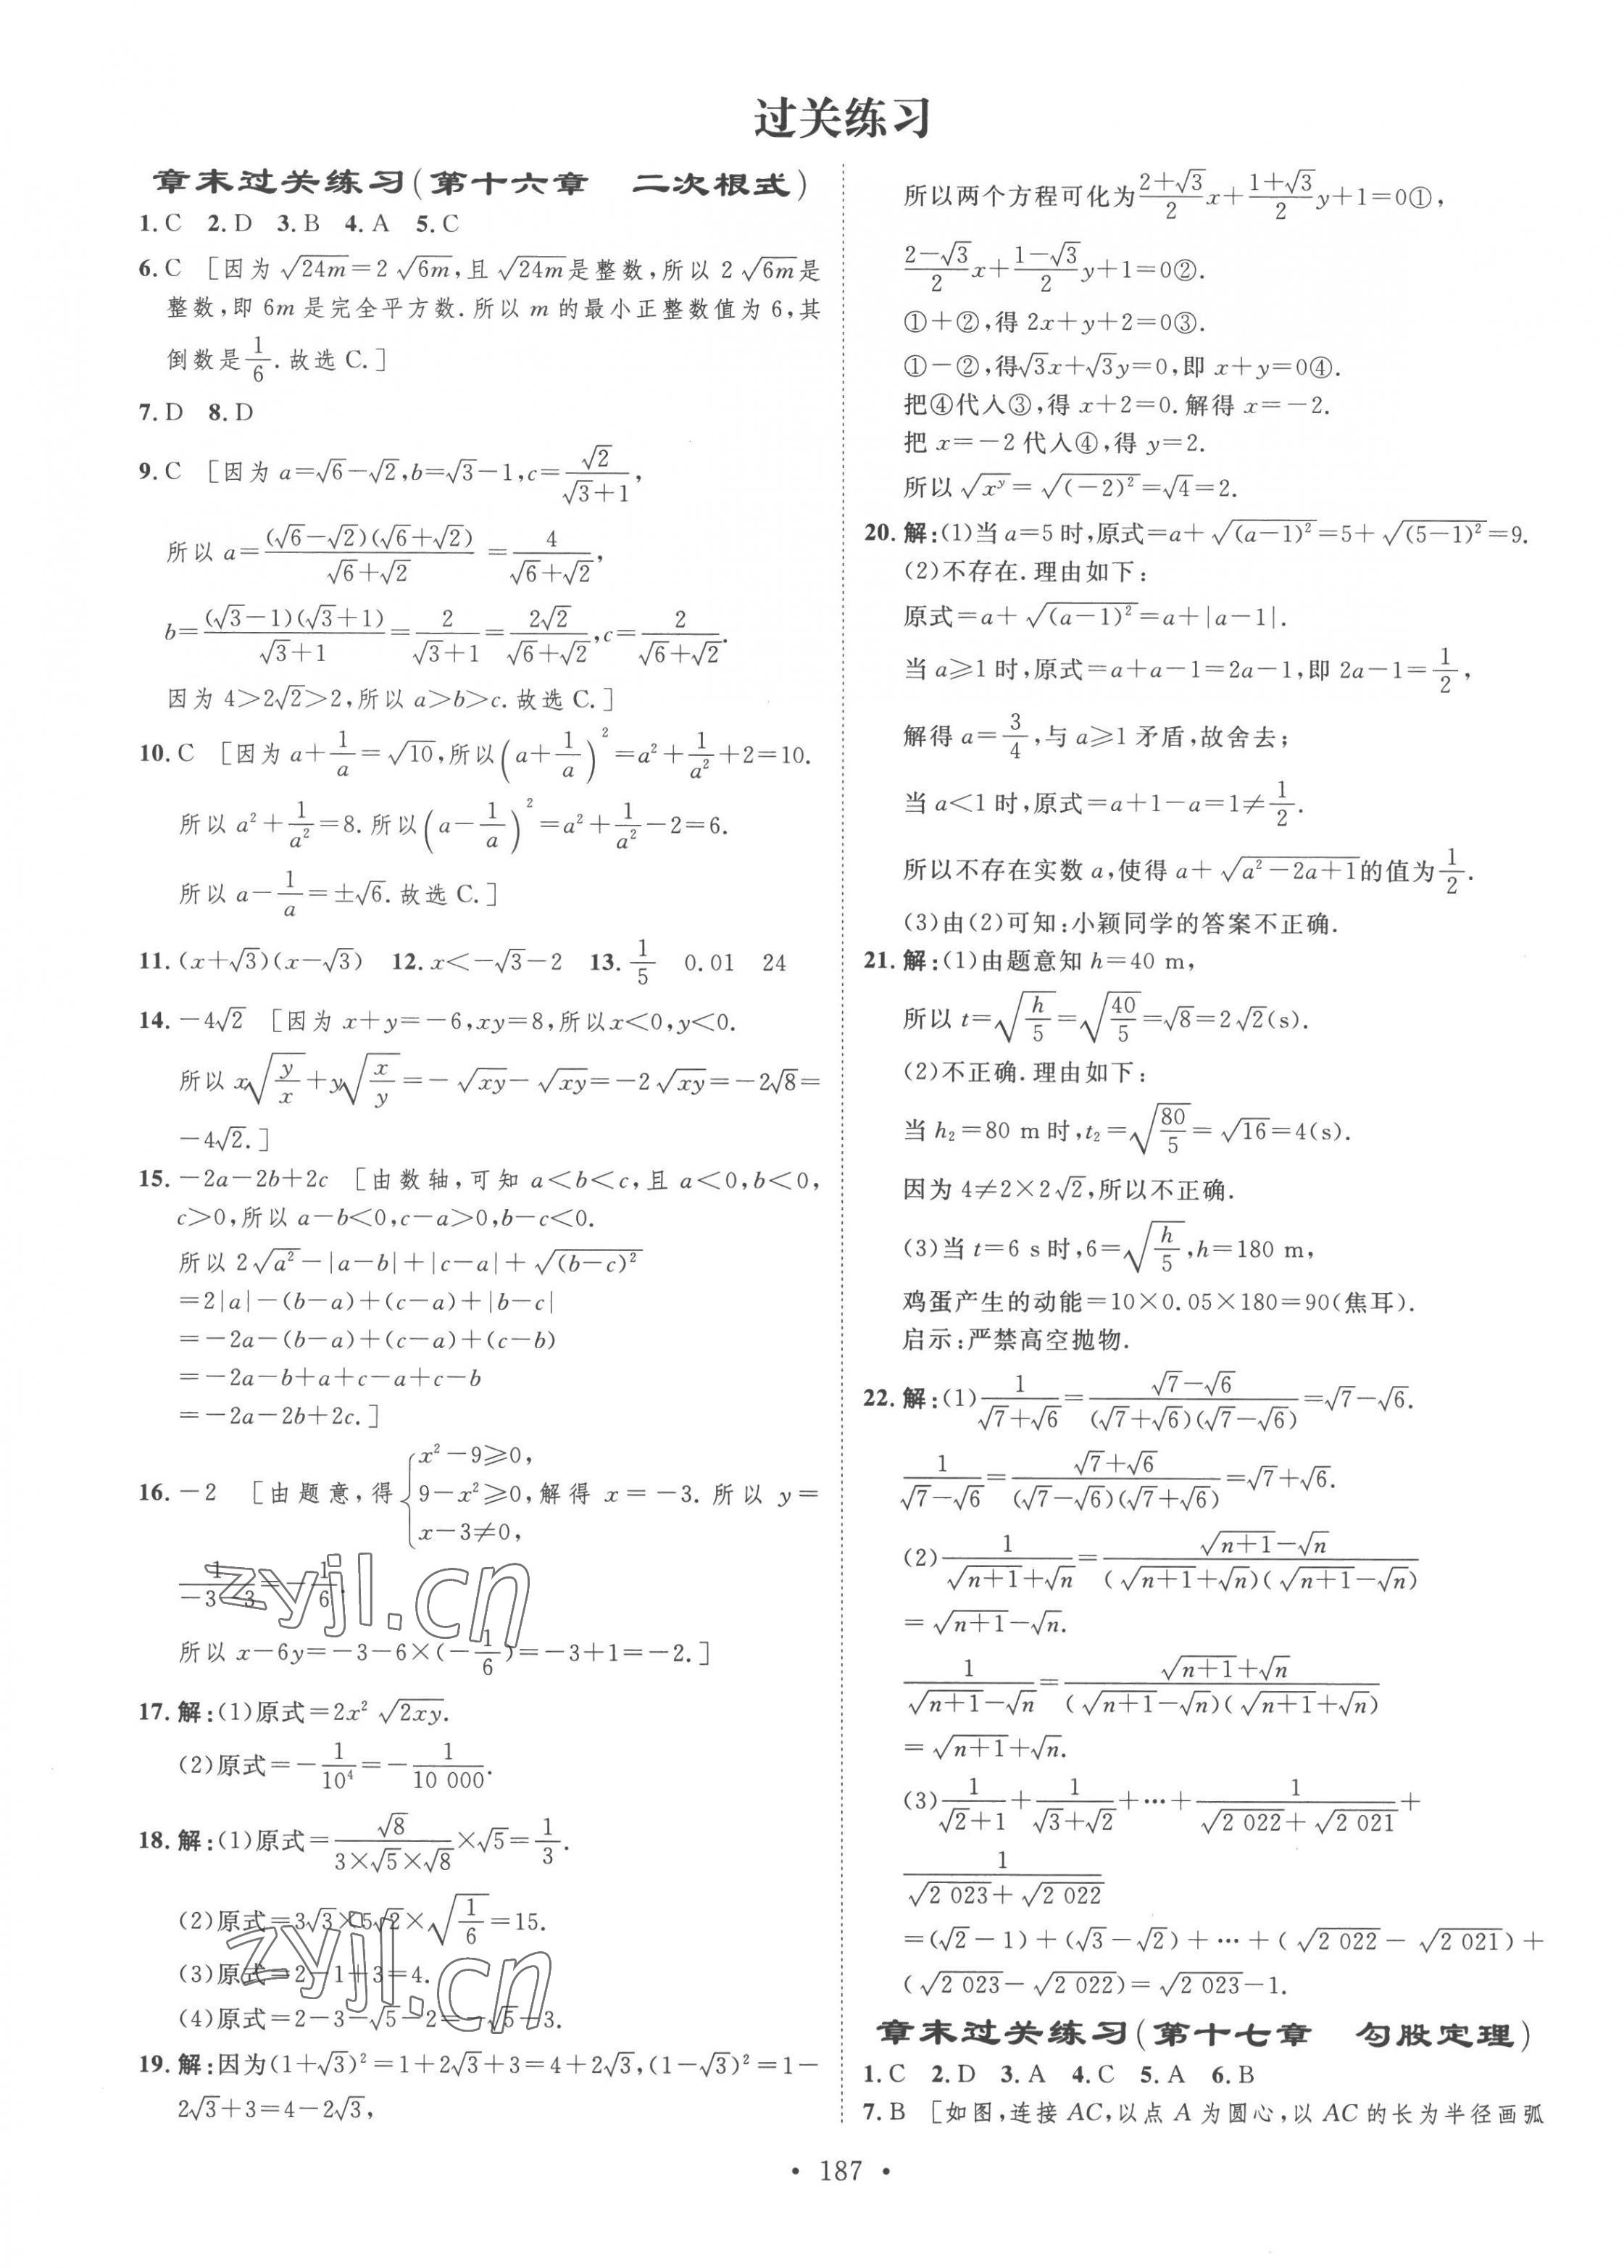 过关练习
章末过关练习(第十六章 二次根式)
1.C 2.D 3.B 4.A 5.C
6.C [因为√(24m)=2√(6m),且√(24m)是整数,所以2√(6m)是
整数,即6m是完全平方数.所以m的最小正整数值为6,其
倒数是1/6.故选C.]
7.D 8.D
9.C [因为a=√6-√2,b=√3-1,c=√2/(√3+1),
所以a=(√6-√2)(√6+√2)/(√6+√2)=4/(√6+√2),
b=(√3-1)(√3+1)/(√3+1)=2/(√3+1)=2√2/(√6+√2),c=2/(√6+√2).
因为4>2√2>2,所以a>b>c.故选C.]
10.C [因为a+1/a=√10,所以(a+1/a)²=a²+1/a²+2=10.
所以a²+1/a²=8.所以(a-1/a)²=a²+1/a²-2=6.
所以a-1/a=±√6.故选C.]
11.(x+√3)(x-√3) 12.x<-√3-2 13.1/5 0.01 24
14.-4√2 [因为x+y=-6,xy=8,所以x<0,y<0.
所以x√(y/x)+y√(x/y)=-√(xy)-√(xy)=-2√(xy)=-2√8=
-4√2.]
15.-2a-2b+2c [由数轴,可知a<b<c,且a<0,b<0,
c>0,所以a-b<0,c-a>0,b-c<0.
所以2√(a²)-|a-b|+|c-a|+√((b-c)²)
=2|a|-(b-a)+(c-a)+|b-c|
=-2a-(b-a)+(c-a)+(c-b)
=-2a-b+a+c-a+c-b
=-2a-2b+2c.]
16.-2 [由题意,得{x²-9≥0,9-x²≥0,x-3≠0,解得x=-3.所以y=
1/(-3-3)=-1/6.
所以x-6y=-3-6×(-1/6)=-3+1=-2.]
17.解:(1)原式=2x²√(2xy).
(2)原式=-1/10⁴=-1/10 000.
18.解:(1)原式=√8/(3×√5×√8)×√5=1/3.
(2)原式=3√3×5√2×√(1/6)=15.
(3)原式=2-1+3=4.
(4)原式=2-3-√5-2=-√5-3.
19.解:因为(1+√3)²=1+2√3+3=4+2√3,(1-√3)²=1-
2√3+3=4-2√3,
所以两个方程可化为(2+√3)/2 x+(1+√3)/2 y+1=0①,
(2-√3)/2 x+(1-√3)/2 y+1=0②.
①+②,得2x+y+2=0③.
①-②,得√3x+√3y=0,即x+y=0④.
把④代入③,得x+2=0.解得x=-2.
把x=-2代入④,得y=2.
所以√(xʸ)=√((-2)²)=√4=2.
20.解:(1)当a=5时,原式=a+√((a-1)²)=5+√((5-1)²)=9.
(2)不存在.理由如下:
原式=a+√((a-1)²)=a+|a-1|.
当a≥1时,原式=a+a-1=2a-1,即2a-1=1/2,
解得a=3/4,与a≥1矛盾,故舍去;
当a<1时,原式=a+1-a=1≠1/2.
所以不存在实数a,使得a+√(a²-2a+1)的值为1/2.
(3)由(2)可知:小颖同学的答案不正确.
21.解:(1)由题意知h=40 m,
所以t=√(h/5)=√(40/5)=√8=2√2(s).
(2)不正确.理由如下:
当h₂=80 m时,t₂=√(80/5)=√16=4(s).
因为4≠2×2√2,所以不正确.
(3)当t=6 s时,6=√(h/5),h=180 m,
鸡蛋产生的动能=10×0.05×180=90(焦耳).
启示:严禁高空抛物.
22.解:(1)1/(√7+√6)=(√7-√6)/((√7+√6)(√7-√6))=√7-√6.
1/(√7-√6)=(√7+√6)/((√7-√6)(√7+√6))=√7+√6.
(2)1/(√(n+1)+√n)=(√(n+1)-√n)/((√(n+1)+√n)(√(n+1)-√n))
=√(n+1)-√n.
1/(√(n+1)-√n)=(√(n+1)+√n)/((√(n+1)-√n)(√(n+1)+√n))
=√(n+1)+√n.
(3)1/(√2+1)+1/(√3+√2)+…+1/(√2 022+√2 021)+
1/(√2 023+√2 022)
=(√2-1)+(√3-√2)+…+(√2 022-√2 021)+
(√2 023-√2 022)=√2 023-1.
章末过关练习(第十七章 勾股定理)
1.C 2.D 3.A 4.C 5.A 6.B
7.B [如图,连接AC,以点A为圆心,以AC的长为半径画弧
·187·
zyjl.cn
zyjl.cn